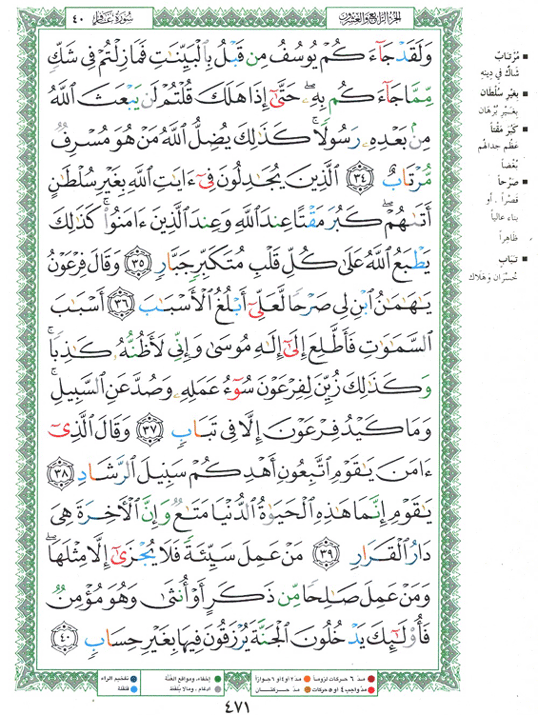 سُورَةُ غَافِرٍ ٤٠
الجُزءُ الرَّابِعُ وَالعِشْرُونَ
وَلَقَدْ جَآءَكُمْ يُوسُفُ مِن قَبْلُ بِٱلْبَيِّنَٰتِ فَمَازِلْتُمْ فِى شَكٍّ
مِّمَّا جَآءَكُم بِهِۦ ۖ حَتَّىٰٓ إِذَا هَلَكَ قُلْتُمْ لَن يَبْعَثَ ٱللَّهُ
مِنۢ بَعْدِهِۦ رَسُولًا ۚ كَذَٰلِكَ يُضِلُّ ٱللَّهُ مَنْ هُوَ مُسْرِفٌ
مُّرْتَابٌ ٣٤ ٱلَّذِينَ يُجَٰدِلُونَ فِىٓ ءَايَٰتِ ٱللَّهِ بِغَيْرِ سُلْطَٰنٍ
أَتَىٰهُمْ ۖ كَبُرَ مَقْتًا عِندَ ٱللَّهِ وَعِندَ ٱلَّذِينَ ءَامَنُوا۟ ۚ كَذَٰلِكَ
يَطْبَعُ ٱللَّهُ عَلَىٰ كُلِّ قَلْبِ مُتَكَبِّرٍ جَبَّارٍ ٣٥ وَقَالَ فِرْعَوْنُ
يَٰهَٰمَٰنُ ٱبْنِ لِى صَرْحًا لَّعَلِّىٓ أَبْلُغُ ٱلْأَسْبَٰبَ ٣٦ أَسْبَٰبَ
ٱلسَّمَٰوَٰتِ فَأَطَّلِعَ إِلَىٰٓ إِلَٰهِ مُوسَىٰ وَإِنِّى لَأَظُنُّهُۥ كَٰذِبًا ۚ
وَكَذَٰلِكَ زُيِّنَ لِفِرْعَوْنَ سُوٓءُ عَمَلِهِۦ وَصُدَّ عَنِ ٱلسَّبِيلِ ۚ
وَمَا كَيْدُ فِرْعَوْنَ إِلَّا فِى تَبَابٍ ٣٧ وَقَالَ ٱلَّذِىٓ
ءَامَنَ يَٰقَوْمِ ٱتَّبِعُونِ أَهْدِكُمْ سَبِيلَ ٱلرَّشَادِ ٣٨
يَٰقَوْمِ إِنَّمَا هَٰذِهِ ٱلْحَيَوٰةُ ٱلدُّنْيَا مَتَٰعٌ وَإِنَّ ٱلْءَاخِرَةَ هِىَ
دَارُ ٱلْقَرَارِ ٣٩ مَنْ عَمِلَ سَيِّئَةً فَلَا يُجْزَىٰٓ إِلَّا مِثْلَهَا ۖ
وَمَنْ عَمِلَ صَٰلِحًا مِّن ذَكَرٍ أَوْ أُنثَىٰ وَهُوَ مُؤْمِنٌ
فَأُو۟لَٰٓئِكَ يَدْخُلُونَ ٱلْجَنَّةَ يُرْزَقُونَ فِيهَا بِغَيْرِ حِسَابٍ ٤٠
مُرْتَابٌ
شَاكٌّ فِي دِينِهِ
بِغَيْرِ سُلْطَانٍ
بِغَيْرِ بُرْهَانٍ
كَبُرَ مَقْتًا
عَظُمَ جِدَالُهُمْ
بُغْضًا
صَرْحًا
قَصْرًا . أو
بناء عالياً
ظَاهِراً
تَبَابٍ
خُسْرَانٍ وَهَلَاكٍ
مدّ ٦ حركات لزوماً
مدّ ٢ أو ٤ أو ٦ جوازاً
مدّ واجب ٤ أو ٥ حركات
مدّ حركتان
إخفاء، ومواقع الغُنّة
ادغام، ومالا يُلفظ
تفخيم الراء
قلقلة
٤٧١